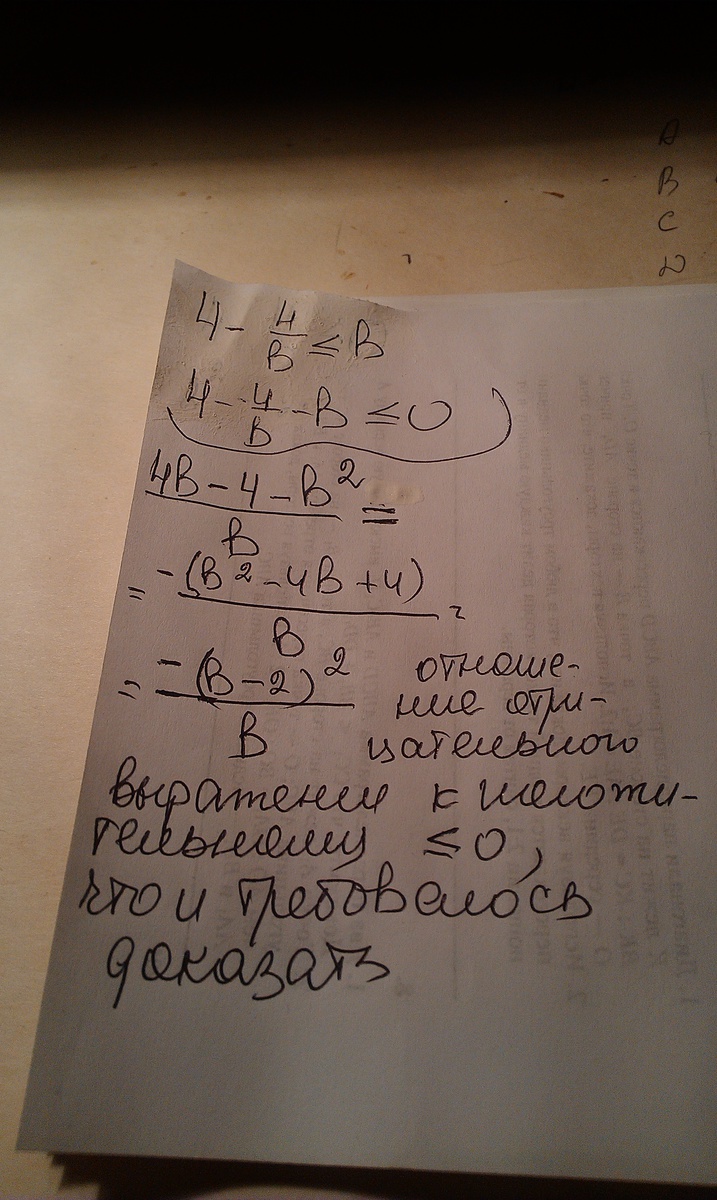 A
B
C
D
4 - 4/B ≤ B
4 - 4/B - B ≤ 0
(4B - 4 - B²)/B =
= -(B² - 4B + 4)/B =
= -(B - 2)²/B
отноше-
ние отри-
цательного
выражения к положи-
тельному ≤ 0,
что и требовалось
доказать